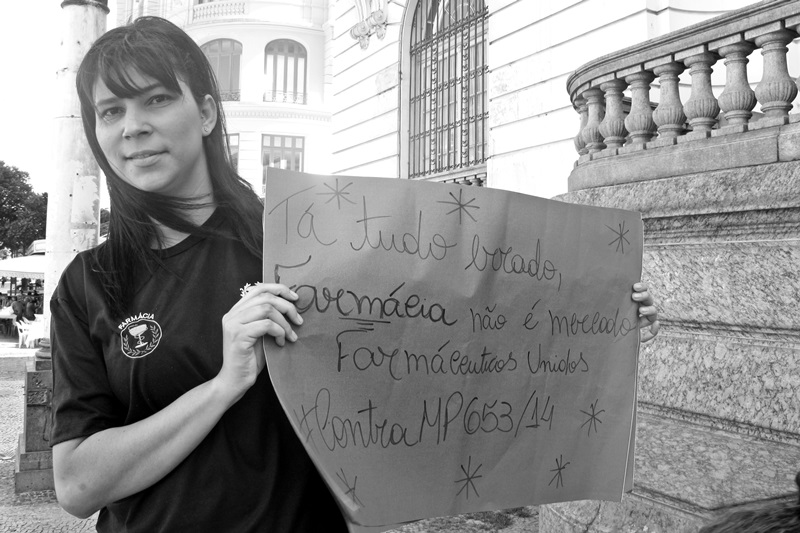 FARMÁCIA
Tá tudo borado,
Farmácia não é mercado
Farmácêuticos Unidos
Contra MP653/14